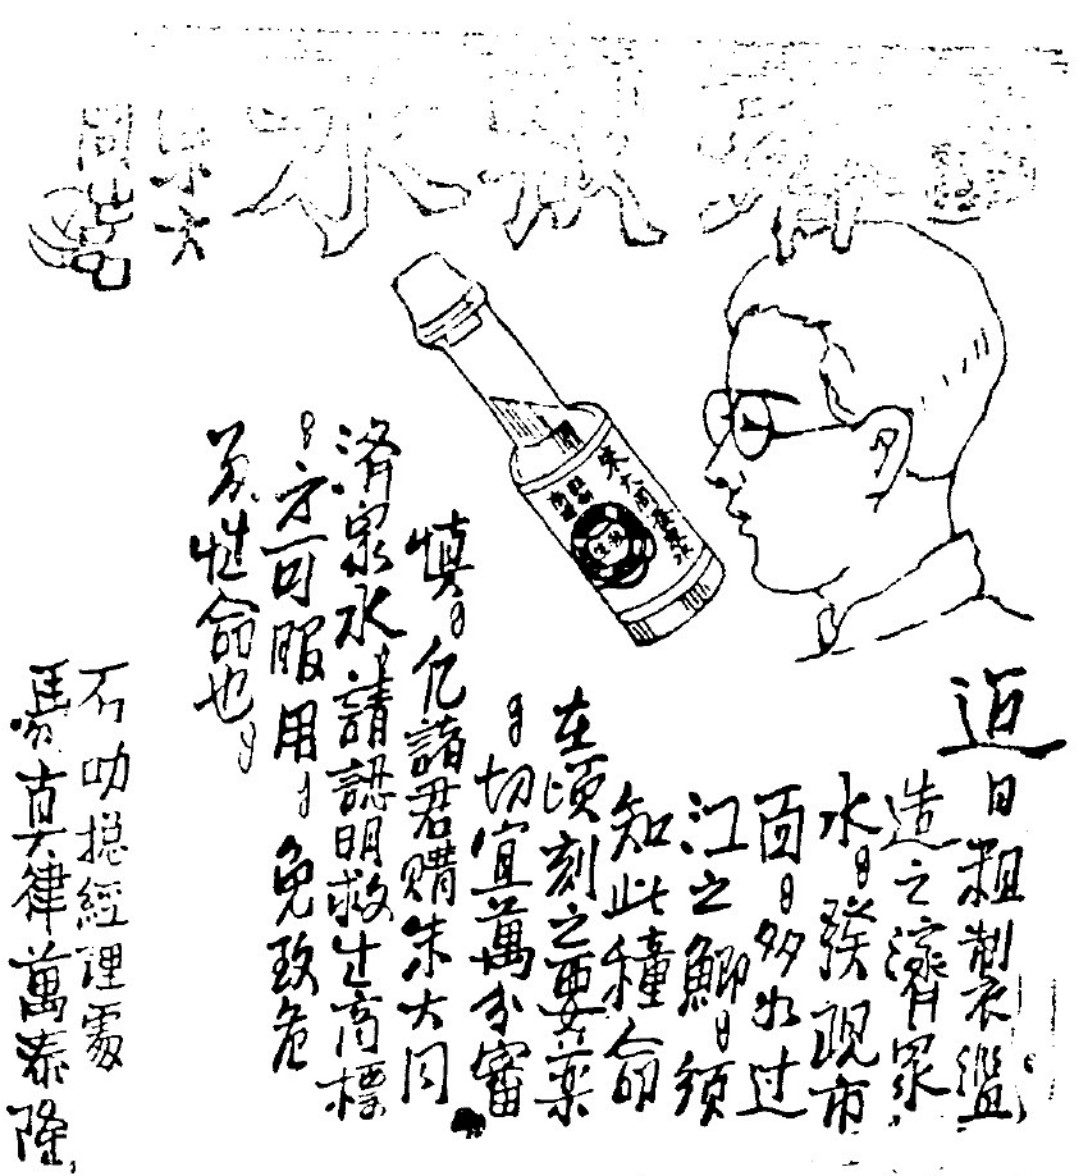 濟眾水
朱大同
近日粗製濫
造之濟眾
水，發現市
面，多如过
江之鯽，須
知此種命
在頃刻之要薬
，切宜萬分審
慎，凡諸君購朱大同
濟眾水，請認明救生商標
，方可服用，免致危
及性命也，
石叻總經理處
馬真律萬泰隆